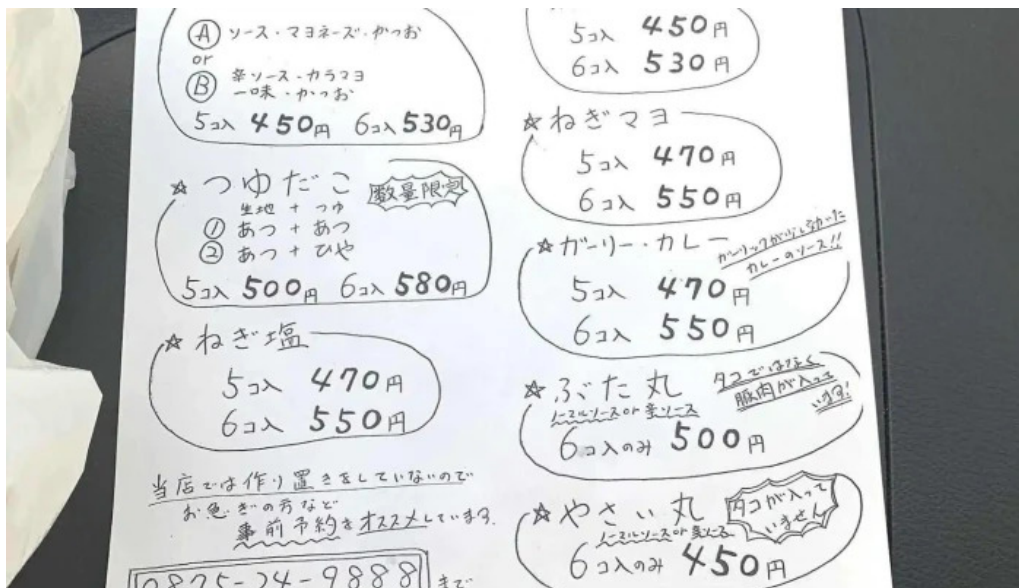 Ⓐ ソース・マヨネーズ・かつお
or
Ⓑ 辛ソース・カラマヨ
一味・かつお
5コ入 450円 6コ入 530円
☆ つゆだこ 数量限定
生地 + つゆ
① あつ + あつ
② あつ + ひや
5コ入 500円 6コ入 580円
☆ ねぎ塩
5コ入 470円
6コ入 550円
当店では作り置きをしていないので
お急ぎの方など
事前予約をオススメしています。
0825-24-9888 まで
5コ入 450円
6コ入 530円
☆ ねぎマヨ
5コ入 470円
6コ入 550円
☆ ガーリー・カレー
ガーリックが少し効いた
カレーのソース!!
5コ入 470円
6コ入 550円
☆ ぶた丸
タコではなく
豚肉が入って
います!
ノーマルソース or 辛ソース
6コ入のみ 500円
☆ やさい丸
タコが入って
いません
ノーマルソース or 辛ソース
6コ入のみ 450円